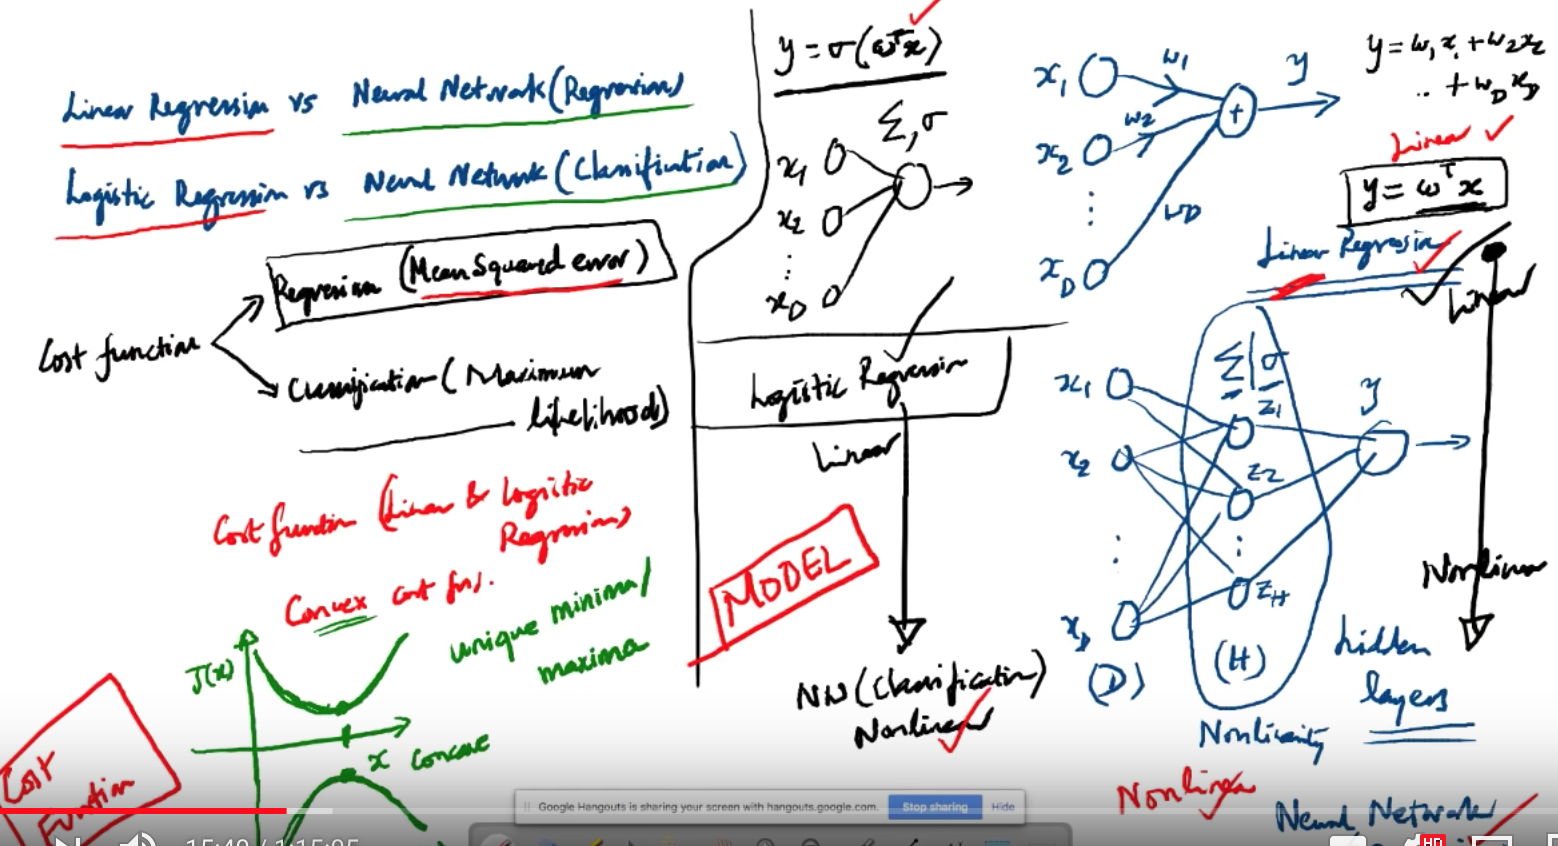 Linear Regression vs Neural Network (Regression)
Logistic Regression vs Neural Network (Classification)
Cost function
Regression (Mean Squared error)
Classification (Maximum
likelihood)
Cost function (Linear & Logistic
Regression)
Convex cost fns.
unique minima/
maxima
J(x)
x
concave
Cost
Function
y = σ(ωᵀx)
Σ, σ
x₁
x₂
⋮
x_D
Logistic Regression
Linear
MODEL
NN (Classification)
Nonlinear
x₁
w₁
+
y
x₂
w₂
⋮
w_D
x_D
y = w₁x₁ + w₂x₂
.. + w_D x_D
Linear
y = ωᵀx
Linear Regression
Linear
Σ|σ
x₁
z₁
y
x₂
z₂
⋮
⋮
z_H
x_D
(D)
(H)
Nonlinear
hidden
layers
Nonlinearity
Nonlinear
Neural Network
Google Hangouts is sharing your screen with hangouts.google.com.
Stop sharing
Hide
15:49 / 1:15:05
HD